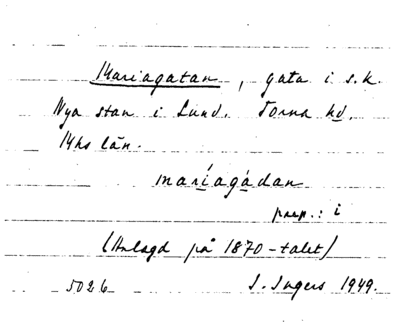 Mariagatan, gata i s.k.
Nya stan i Lund. Torna hd.
Mhs län.
marìagàdan
prep.: i
(Anlagd på 1870-talet)
5026 I. Ingers 1949.